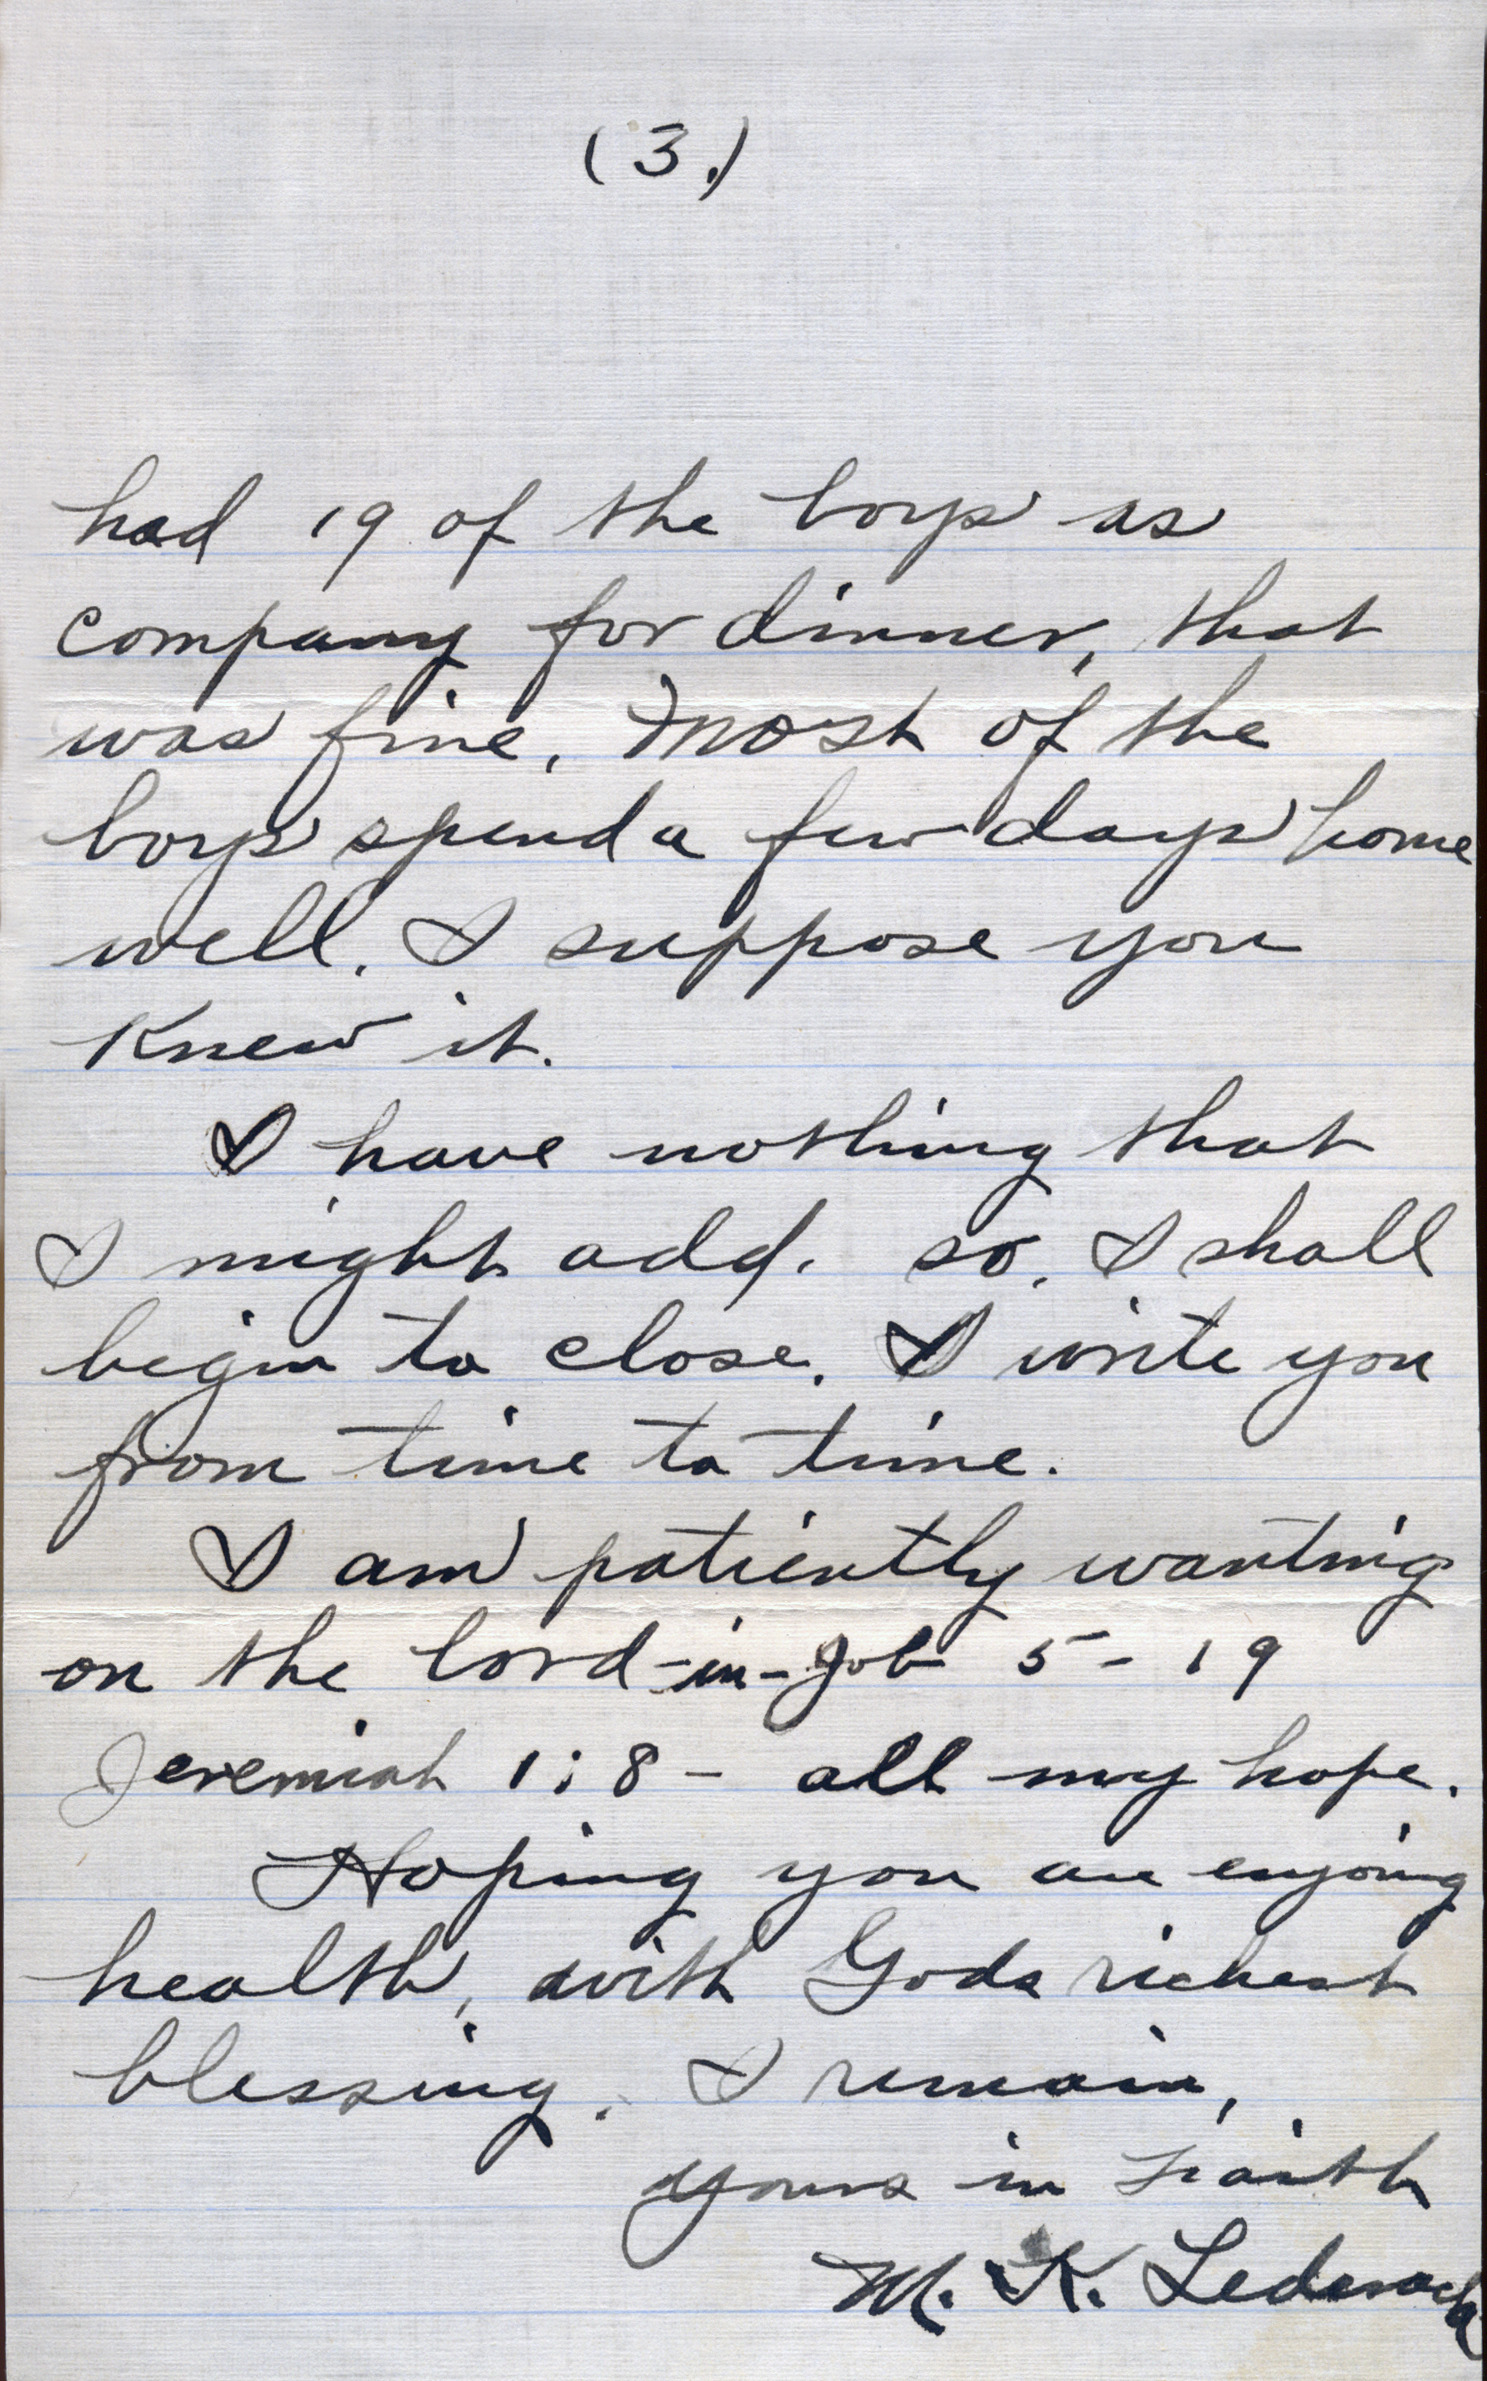 (3.)
had 19 of the boys as
company for dinner, that
was fine. Most of the
boys spend a few days home
well. I suppose you
knew it.
I have nothing that
I might add. so, I shall
begin to close. I write you
from time to time.
I am patiently waiting
on the lord-in-Job 5-19
Jeremiah 1:8 - all my hope.
Hoping you are enjoing
health, with Gods richest
blessing. I remain,
yours in Faith
M. K. Lederach